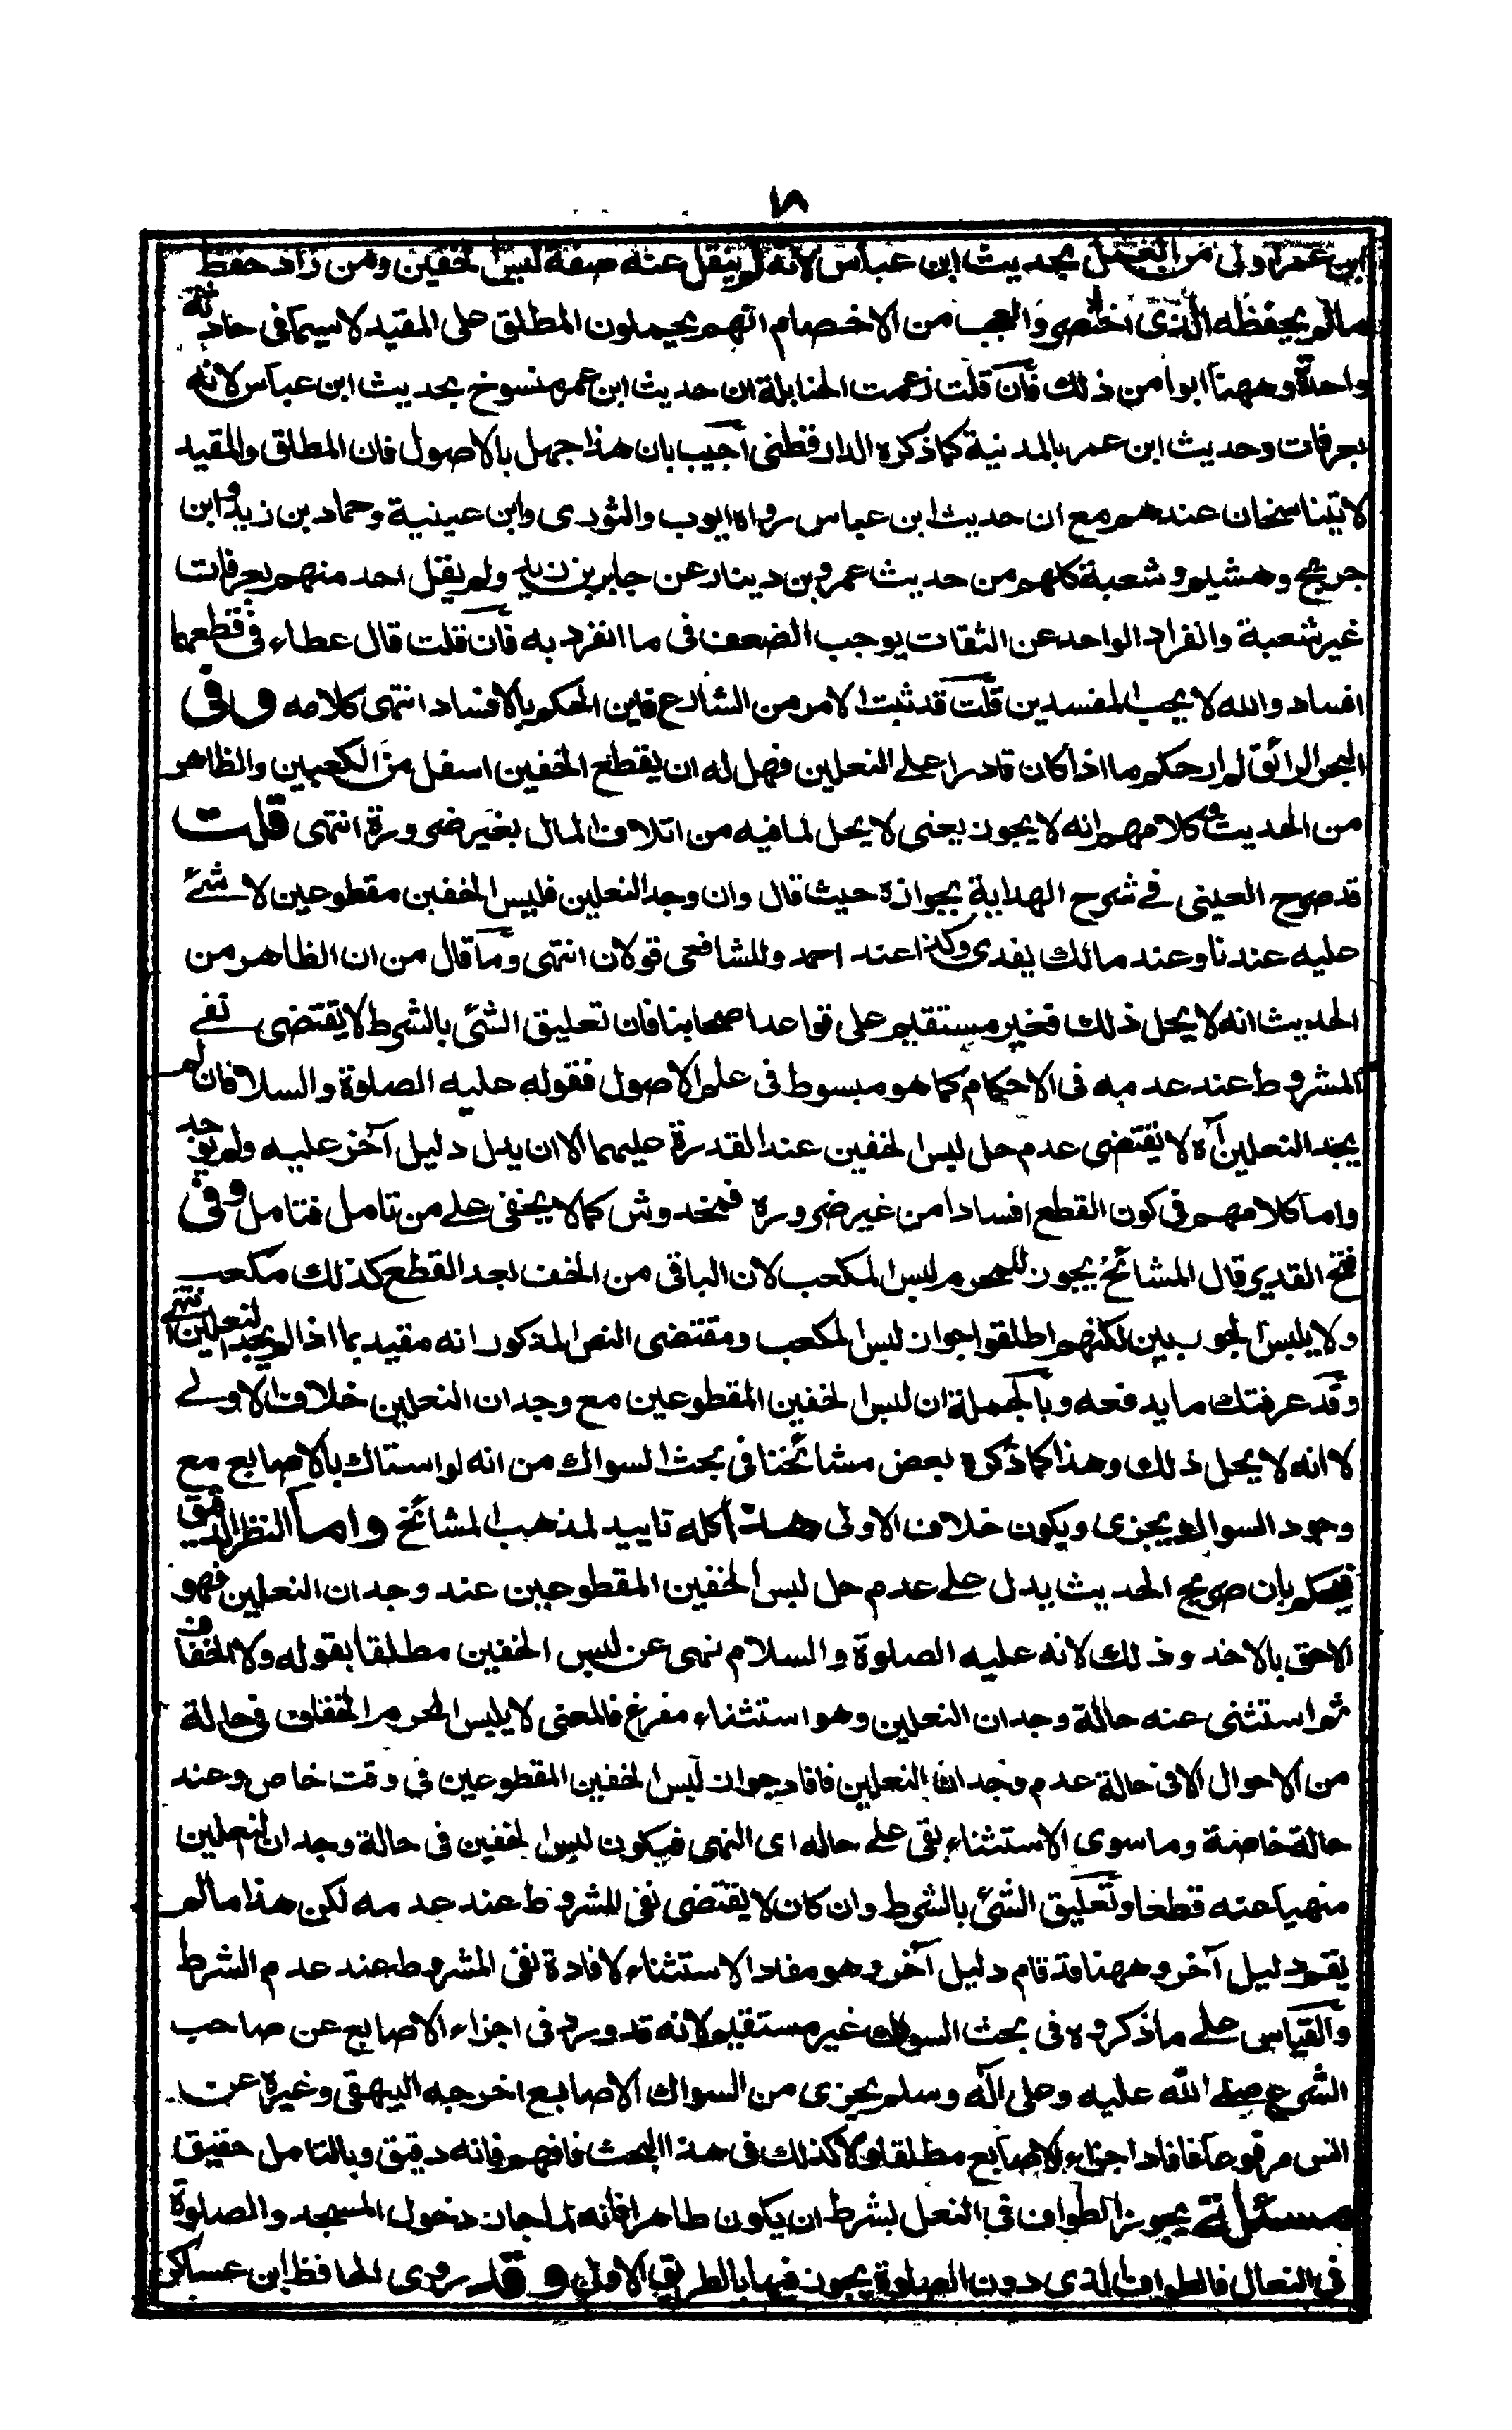 ١٨
ابن عمر اولى من العمل بحديث ابن عباس لانه لم ينقل عنه صفة لبس الخفين ومن زاد حفظ
مالم يحفظه الذى اختصر والعجب من الاخصام انهم يحملون المطلق على المقيد لاسيما فى حادثة
واحدة وههنا ابوا من ذلك فان قلت زعمت الحنابلة ان حديث ابن عمر منسوخ بحديث ابن عباس لانه
بعرفات وحديث ابن عمر بالمدنية كما ذكره الدارقطنى اجيب بان هذا جهل بالاصول فان المطلق والمقيد
لا يتناسخان عندهم مع ان حديث ابن عباس رواه ايوب والثورى وابن عيينية وحماد بن زيد وابن
جريج وهشيم وشعبة كلهم من حديث عمرو بن دينار عن جابر بن زيد ولم يقل احد منهم بعرفات
غير شعبة وانفراد الواحد عن الثقات يوجب الضعف فى ما انفرد به فان قلت قال عطاء فى قطعهما
افساد والله لا يحب المفسدين قلت قد ثبت الامر من الشارع فاين الحكم بالافساد انتهى كلامه وفى
البحر الرائق لم ار حكم ما اذا كان قادرا على النعلين فهل له ان يقطع الخفين اسفل من الكعبين والظاهر
من الحديث وكلامهم انه لا يجوز يعنى لا يحل لما فيه من اتلاف المال بغير ضرورة انتهى قلت
قد صرح العينى فى شرح الهداية بجوازه حيث قال وان وجد النعلين فلبس الخفين مقطوعين لا شئ
عليه عندنا وعند مالك يفدى وكذا عند احمد وللشافعى قولان انتهى وما قال من ان الظاهر من
الحديث انه لا يحل ذلك فغير مستقيم على قواعد اصحابنا فان تعليق الشئ بالشرط لا يقتضى نفى
المشروط عند عدمه فى الاحكام كما هو مبسوط فى علم الاصول فقوله عليه الصلوة والسلا فان لم
يجد النعلين آه لا يقتضى عدم حل لبس الخفين عند القدرة عليهما الا ان يدل دليل آخر عليه ولم يوجد
واما كلامهم فى كون القطع افسادا من غير ضرورة فمخدوش كما لا يخفى على من تامل فتامل وفى
فتح القدير قال المشائخ يجوز للمحرم لبس المكعب لان الباقى من الخف بعد القطع كذلك مكعب
ولا يلبس الجوربين لكنهم اطلقوا جواز لبس المكعب ومقتضى النص المذكور انه مقيد بما اذا لم يجد النعلين انتهى
وقد عرفتك ما يدفعه وبالجملة ان لبس الخفين المقطوعين مع وجدان النعلين خلاف الاولى
لا انه لا يحل ذلك وهذا كما ذكره بعض مشائخنا فى بحث السواك من انه لو استاك بالاصابع مع
وجود السواك يجزى ويكون خلاف الاولى هذا كله تاييد لمذهب المشائخ واما النظر الدقيق
فيحكم بان صريح الحديث يدل على عدم حل لبس الخفين المقطوعين عند وجدان النعلين فهو
الاحق بالاخذ وذلك لانه عليه الصلوة والسلام نهى عن لبس الخفين مطلقا بقوله ولا الخفاف
ثم استثنى عنه حالة وجدان النعلين وهو استثناء مفرغ فالمعنى لا يلبس المحرم الخفاف فى حالة
من الاحوال الا فى حالة عدم وجدان النعلين فافاد جواز لبس الخفين المقطوعين فى وقت خاص وعند
حالة خاصة وما سوى الاستثناء بقى على حاله اى النهى فيكون لبس الخفين فى حالة وجدان النعلين
منهيا عنه قطعا وتعليق الشئ بالشرط وان كان لا يقتضى نفى المشروط عند عدمه لكن هذا ما لم
يقم دليل آخر وههنا قد قام دليل آخر وهو مفاد الاستثناء لافادة نفى المشروط عند عدم الشرط
والقياس على ما ذكروه فى بحث السواك غير مستقيم لانه قد ورد فى اجزاء الاصابع عن صاحب
الشرع صلى الله عليه وعلى آله وسلم يجزى من السواك الاصابع اخرجه البيهقى وغيره عن
انس مرفوعا فافاد اجزاء الاصابع مطلقا ولا كذلك فى هذا البحث فافهم فانه دقيق وبالتامل حقيق
مسئلة يجوز الطواف فى النعل بشرط ان يكون طاهرا فانه لما جاز دخول المسجد والصلوة
فى النعال فالطواف الذى دون الصلوة يجوز فيها بالطريق الاولى وقد روى الحافظ ابن عساكر